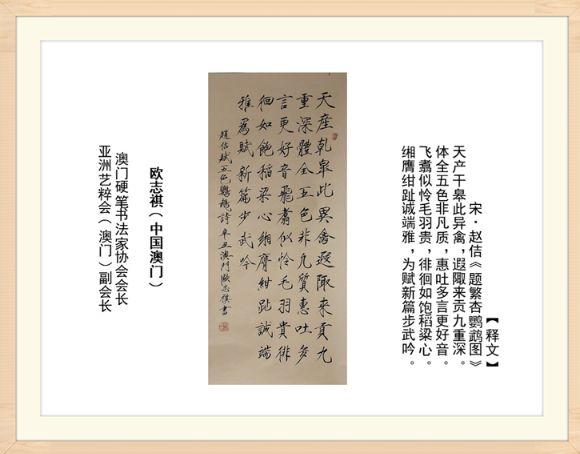 【释文】
宋·赵佶《题繁杏鹦鹉图》
天产干皋此异禽，遐陬来贡九重深。
体全五色非凡质，惠吐多言更好音。
飞翥似怜毛羽贵，徘徊如饱稻粱心。
缃膺绀趾诚端雅，为赋新篇步武吟。
天產乾皋此異禽遐陬来貢九
重深體全五色非凡質惠吐多
言更好音飛翥似怜毛羽貴徘
徊如飽稻梁心緗膺紺趾誠端
雅為賦新篇步武吟
趙佶賦五色鸚鵡詩辛丑澳門歐志祺書
欧志祺（中国澳门）
澳门硬笔书法家协会会长
亚洲艺粹会（澳门）副会长